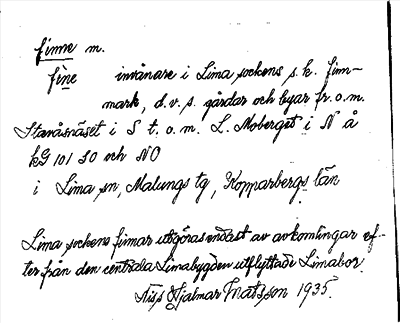 finne m.
fìne invånare i Lima sockens s.k. finn-
mark, d.v.s. gårdar och byar fr.o.m.
Stavåsnäset i S t.o.m. L. Moberget i N å
kG 101 SO och NO
i Lima sn, Malungs tg, Kopparbergs län
Lima sockens finnar utgöras endast av avkomlingar ef-
ter från den centrala Limabygden utflyttade Limabor.
Hjalmar Matsson 1935.